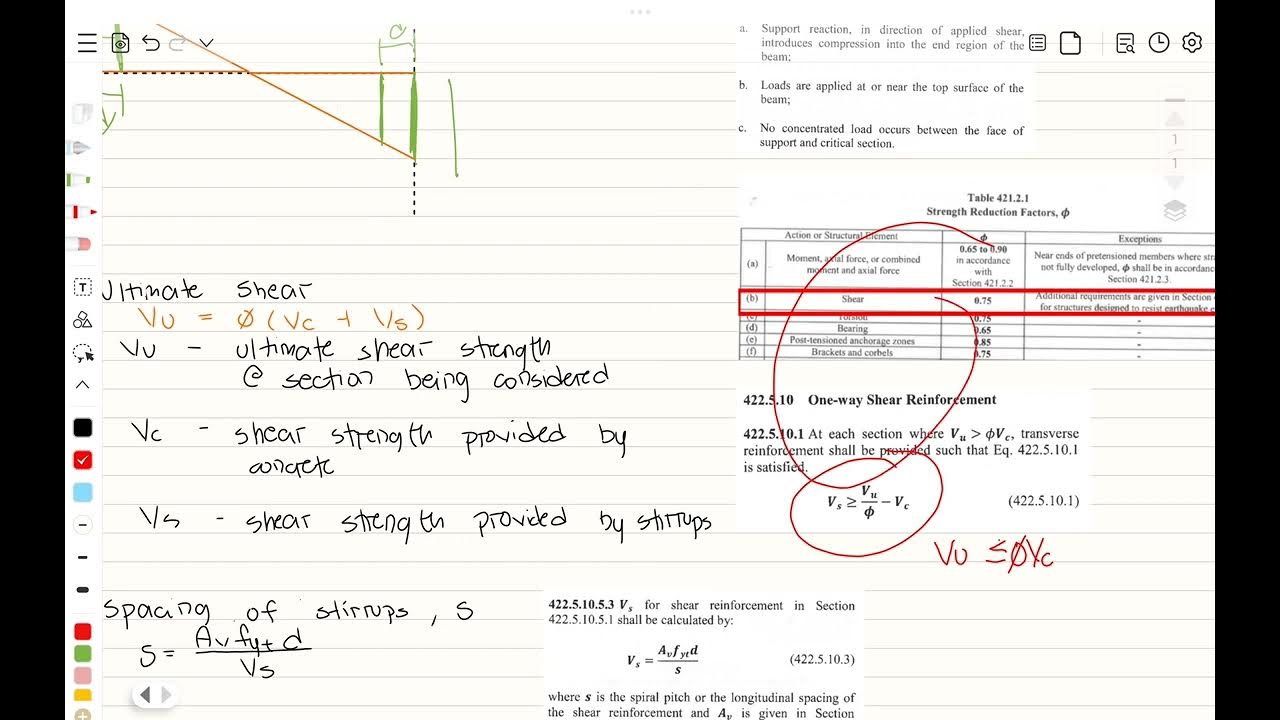 d
a. Support reaction, in direction of applied shear,
introduces compression into the end region of the
beam;
b. Loads are applied at or near the top surface of the
beam;
c. No concentrated load occurs between the face of
support and critical section.
1
1
Table 421.2.1
Strength Reduction Factors, ϕ
Action or Structural Element ϕ Exceptions
(a) Moment, axial force, or combined
moment and axial force
0.65 to 0.90
in accordance
with
Section 421.2.2
Near ends of pretensioned members where str
not fully developed, ϕ shall be in accordanc
Section 421.2.3.
(b) Shear 0.75 Additional requirements are given in Section
for structures designed to resist earthquake e
(c) Torsion 0.75 -
(d) Bearing 0.65 -
(e) Post-tensioned anchorage zones 0.85 -
(f) Brackets and corbels 0.75 -
T
Ultimate shear
Vu = ϕ (Vc + Vs)
Vu - ultimate shear strength
@ section being considered
Vc - shear strength provided by
concrete
Vs - shear strength provided by stirrups
422.5.10 One-way Shear Reinforcement
422.5.10.1 At each section where Vu > ϕVc, transverse
reinforcement shall be provided such that Eq. 422.5.10.1
is satisfied.
Vs ≥ Vu/ϕ − Vc (422.5.10.1)
Vu ≤ ϕVc
Spacing of stirrups, S
S = Av fyt d / Vs
422.5.10.5.3 Vs for shear reinforcement in Section
422.5.10.5.1 shall be calculated by:
Vs = Av fyt d / s (422.5.10.3)
where s is the spiral pitch or the longitudinal spacing of
the shear reinforcement and Av is given in Section